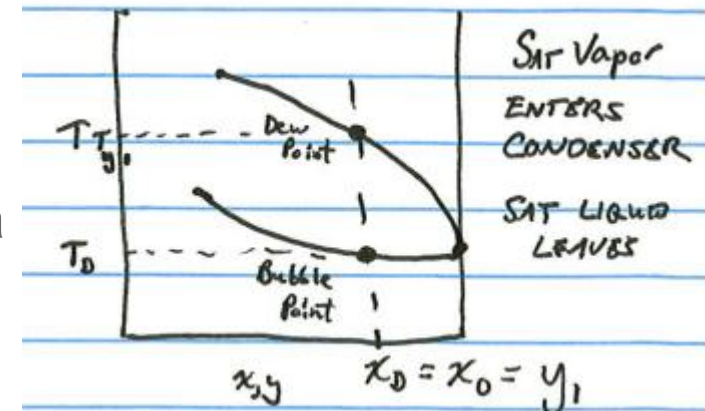 SAT Vapor
ENTERS
CONDENSER
SAT LIQUID
LEAVES
T
T y₁
Dew
Point
T_D
Bubble
Point
x,y
x_D = x_0 = y_1